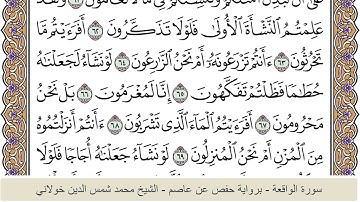 عَلِمْتُمُ ٱلنَّشْأَةَ ٱلْأُولَىٰ فَلَوْلَا تَذَكَّرُونَ ٦٢ أَفَرَءَيْتُم مَّا
تَحْرُثُونَ ٦٣ ءَأَنتُمْ تَزْرَعُونَهُۥٓ أَمْ نَحْنُ ٱلزَّٰرِعُونَ ٦٤ لَوْ نَشَآءُ لَجَعَلْنَٰهُ
حُطَٰمًا فَظَلْتُمْ تَفَكَّهُونَ ٦٥ إِنَّا لَمُغْرَمُونَ ٦٦ بَلْ نَحْنُ
مَحْرُومُونَ ٦٧ أَفَرَءَيْتُمُ ٱلْمَآءَ ٱلَّذِى تَشْرَبُونَ ٦٨ ءَأَنتُمْ أَنزَلْتُمُوهُ
مِنَ ٱلْمُزْنِ أَمْ نَحْنُ ٱلْمُنزِلُونَ ٦٩ لَوْ نَشَآءُ جَعَلْنَٰهُ أُجَاجًا فَلَوْلَا
سورة الواقعة - برواية حفص عن عاصم - الشيخ محمد شمس الدين خولاني